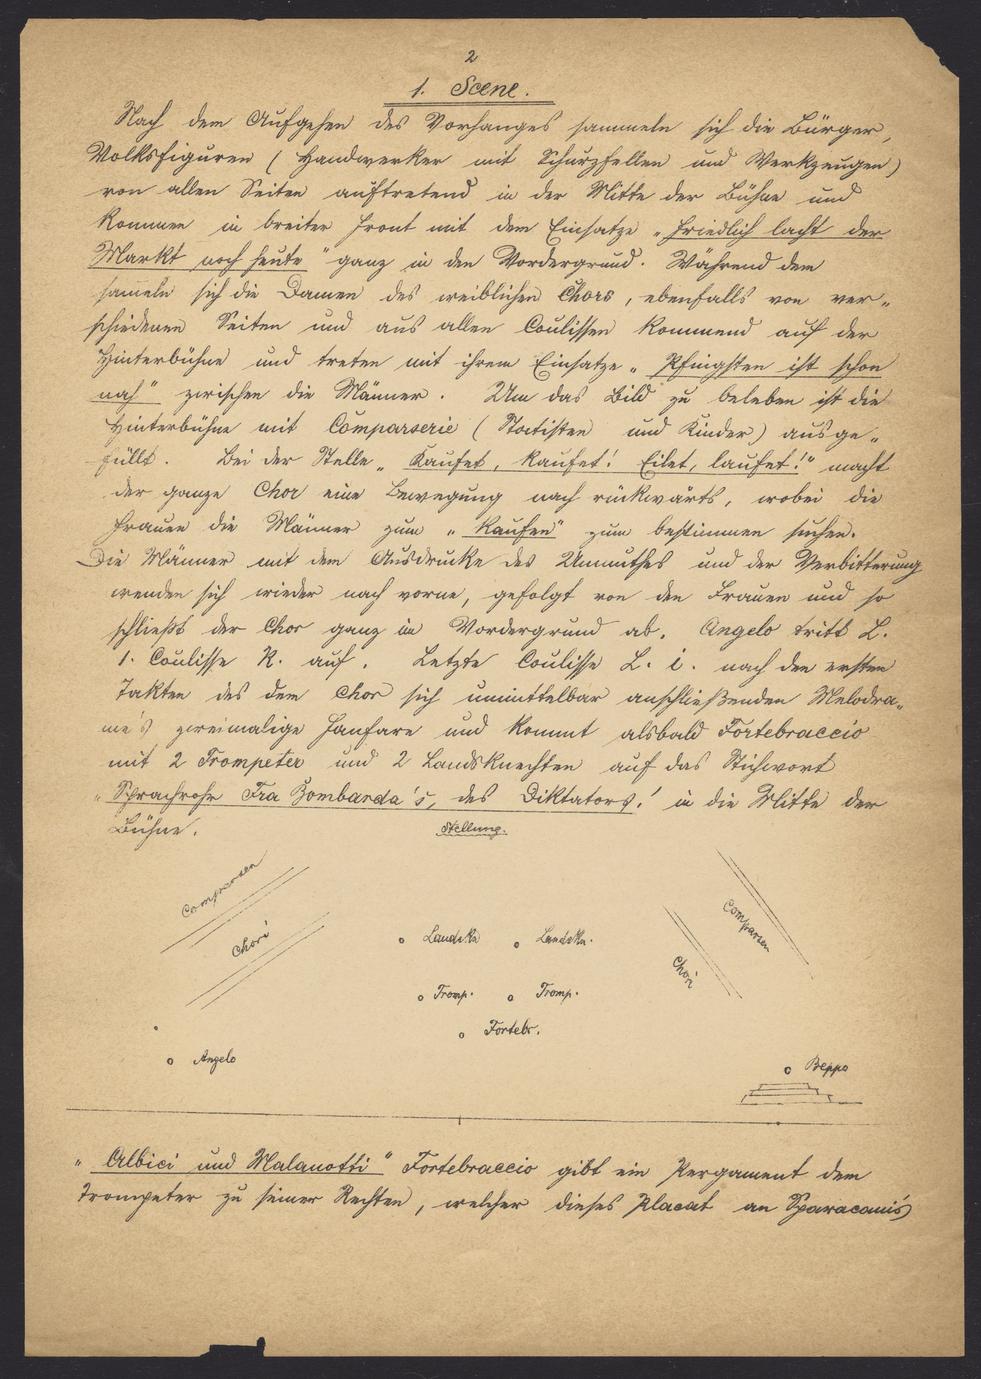 2
1. Scene.
Nach dem Aufgehen des Vorhanges sammeln sich die Bürger,
Volksfiguren (Handwerker mit Schurzfellen und Werkzeugen)
von allen Seiten auftretend in der Mitte der Bühne und
kommen in breiter Front mit dem Einsatze „Friedlich lacht der
Markt noch heute" ganz in den Vordergrund. Während dem
sameln sich die Damen des weiblichen Chors, ebenfalls von ver-
schiedenen Seiten und aus allen Coulissen kommend auf der
Hinterbühne und treten mit ihrem Einsatze „Pfingsten ist schon
nah" zwischen die Männer. Um das Bild zu beleben ist die
Hinterbühne mit Comparserie (Statisten und Kinder) ausge-
füllt. Bei der Stelle „Kaufet, kaufet! Eilet, laufet!" macht
der ganze Chor eine Bewegung nach rückwärts, wobei die
Frauen die Männer zum „Kaufen" zum bestimmen suchen.
Die Männer mit dem Ausdrucke des Unmuthes und der Verbitterung
wenden sich wieder nach vorne, gefolgt von den Frauen und so
schließt der Chor ganz im Vordergrund ab. Angelo tritt L.
1. Coulisse R. auf. Letzte Coulisse L. i. nach den ersten
Takten des dem Chor sich unmittelbar anschließenden Melodra-
me's zweimalige Fanfare und kommt alsbald Fortebraccio
mit 2 Trompeter und 2 Landsknechten auf das Stichwort
„Sprachrohr Fra Bombarda's, des Diktators!" in die Mitte der
Bühne.
Stellung.
Comparsen
Chori
Landskn
Landskn.
Comparsen
Chori
Tromp.
Tromp.
Fortebr.
Angelo
Beppo
„Albici und Malanotti" Fortebraccio gibt ein Pergament dem
Trompeter zu seiner Rechten, welcher dieses Placat an Sparacanis